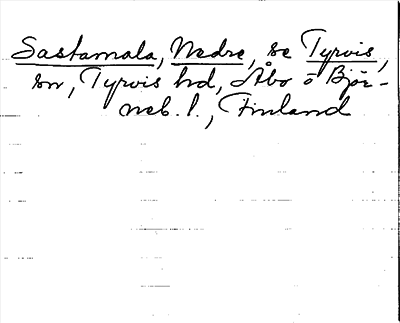 Sastamala, Nedre, se Tyrvis,
sn, Tyrvis hd, Åbo o Björ-
neb. l., Finland